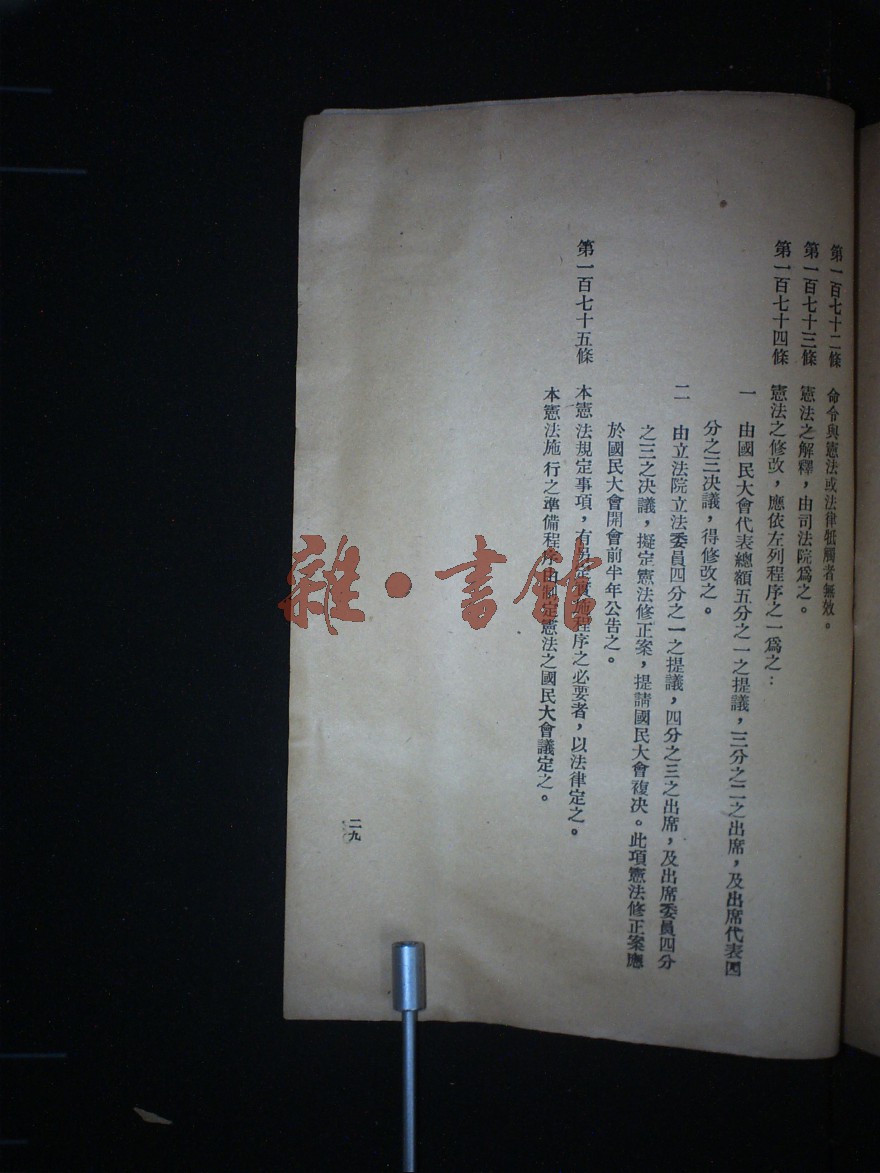 第一百七十二條　命令與憲法或法律牴觸者無效。
第一百七十三條　憲法之解釋，由司法院爲之。
第一百七十四條　憲法之修改，應依左列程序之一爲之：
一　由國民大會代表總額五分之一之提議，三分之二之出席，及出席代表四
分之三決議，得修改之。
二　由立法院立法委員四分之一之提議，四分之三之出席，及出席委員四分
之三之決議，擬定憲法修正案，提請國民大會複決。此項憲法修正案應
於國民大會開會前半年公告之。
第一百七十五條　本憲法規定事項，有另定實施程序之必要者，以法律定之。
本憲法施行之準備程序由制定憲法之國民大會議定之。
二九
雜·書館